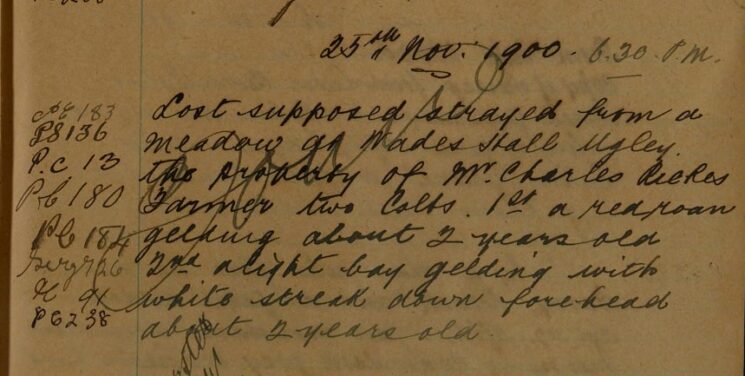 25th Nov. 1900. 6.30. P.M.
183
PS 136
P.C. 13
PC 180
PC 184
26
91
PC 238
Lost supposed strayed from a
meadow at Wades Hall Ugley.
the property of Mr. Charles Rickes
Farmer two Colts. 1st a red, roan
gelding about 2 years old
2nd a light bay gelding with
white streak down forehead
about 2 years old.